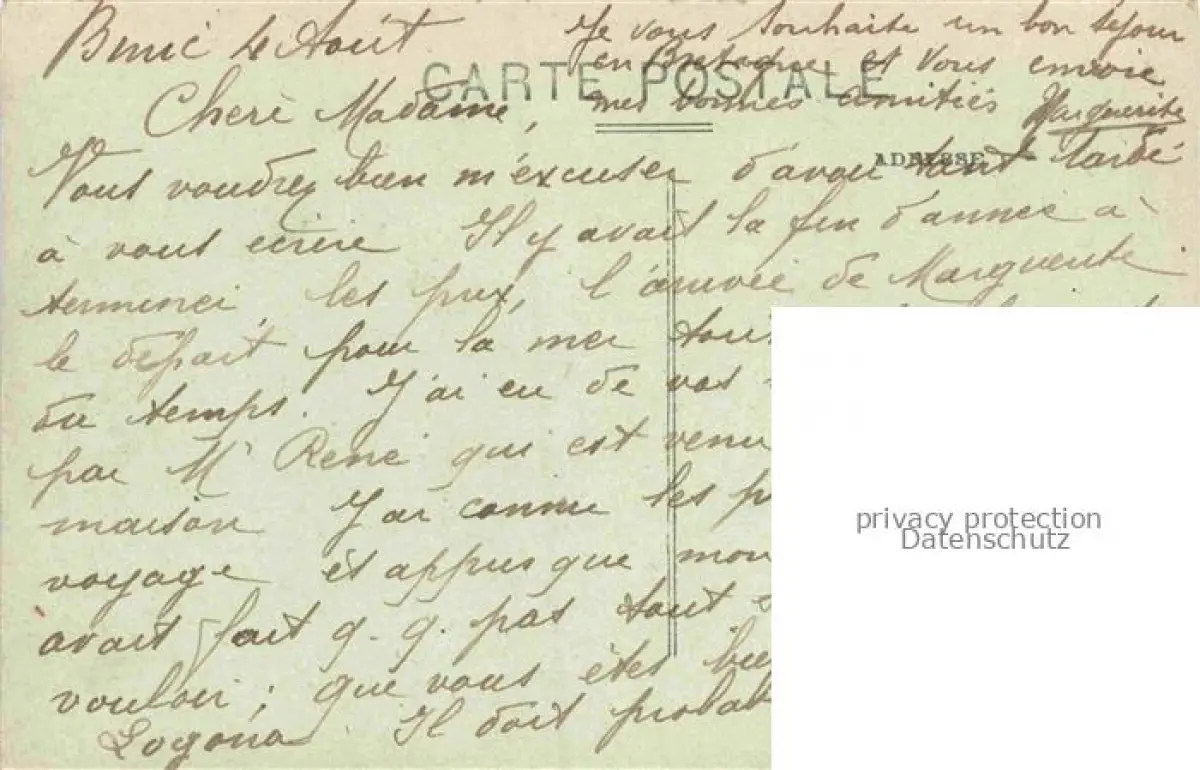 Binic 4 Août
Je vous souhaite un bon séjour
en Bretagne et vous envoie
mes bonnes amitiés Marguerite
CARTE POSTALE
ADRESSE
Chère Madame,
Vous voudrez bien m'excuser d'avoir tant tardé
à vous écrire Il y avait la fin d'année à
terminer, les prix, l'arrivée de Marguerite
le départ pour la mer
du temps. J'ai eu de vos
par Mr René qui est venu
maison J'ai connu les
voyage et appris que mon
avait fait q. q. pas
vouloir ; que vous êtes
Logona Il doit
privacy protection
Datenschutz